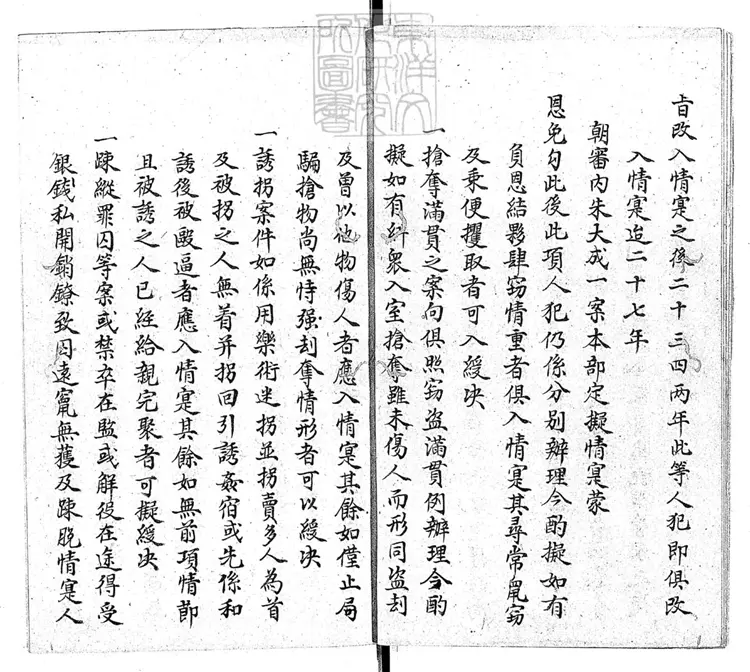 旨改入情寔之後二十三四兩年此等人犯即俱改
入情寔迨二十七年
朝審內朱大成一案本部定擬情寔蒙
恩免勾此後此項人犯仍係分別辦理今酌擬如有
負恩結夥肆竊情重者俱入情寔其尋常鼠竊
及乘便攫取者可入緩决
一搶奪滿貫之案向俱照竊盜滿貫例辦理今酌
擬如有糾衆入室搶奪雖未傷人而形同盜刦
及曾以他物傷人者應入情寔其餘如僅止局
騙搶物尚無恃强刦奪情形者可以緩决
一誘拐案件如係用藥術迷拐並拐賣多人為首
及被拐之人無着并拐回引誘姦宿或先係和
誘後被毆逼者應入情寔其餘如無前項情節
且被誘之人已經給親完聚者可擬緩决
一疎縱罪囚等案或禁卒在監或解役在途得受
銀錢私開鎖鐐致囚遠竄無獲及疎脫情寔人
東洋文化研究所圖書